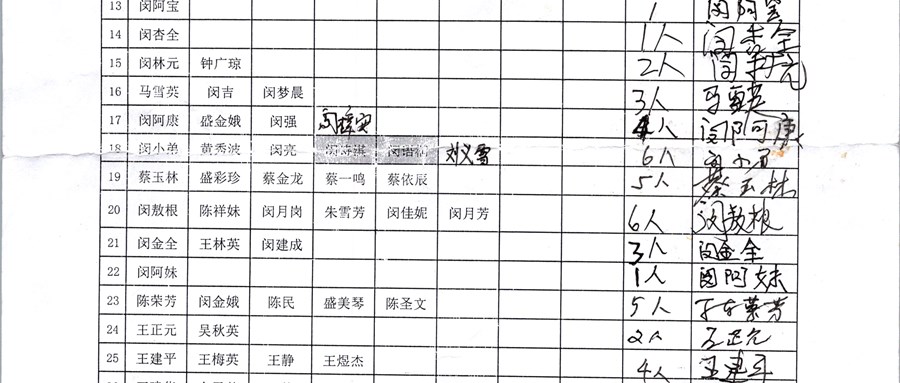 13 闵阿宝 1 闵阿宝
14 闵杏全 1人 闵杏全
15 闵林元 钟广琼 2人 闵林元
16 马雪英 闵吉 闵梦晨 3人 马雪英
17 闵阿康 盛金娥 闵强 4人 闵阿康
18 闵小弟 黄秀波 闵亮 刘义雪 6人 闵小弟
19 蔡玉林 盛彩珍 蔡金龙 蔡一鸣 蔡依辰 5人 蔡玉林
20 闵敖根 陈祥妹 闵月岗 朱雪芳 闵佳妮 闵月芳 6人 闵敖根
21 闵金全 王林英 闵建成 3人 闵金全
22 闵阿妹 1人 闵阿妹
23 陈荣芳 闵金娥 陈民 盛美琴 陈圣文 5人 陈荣芳
24 王正元 吴秋英 2人 王正元
25 王建平 王梅英 王静 王煜杰 4人 王建平